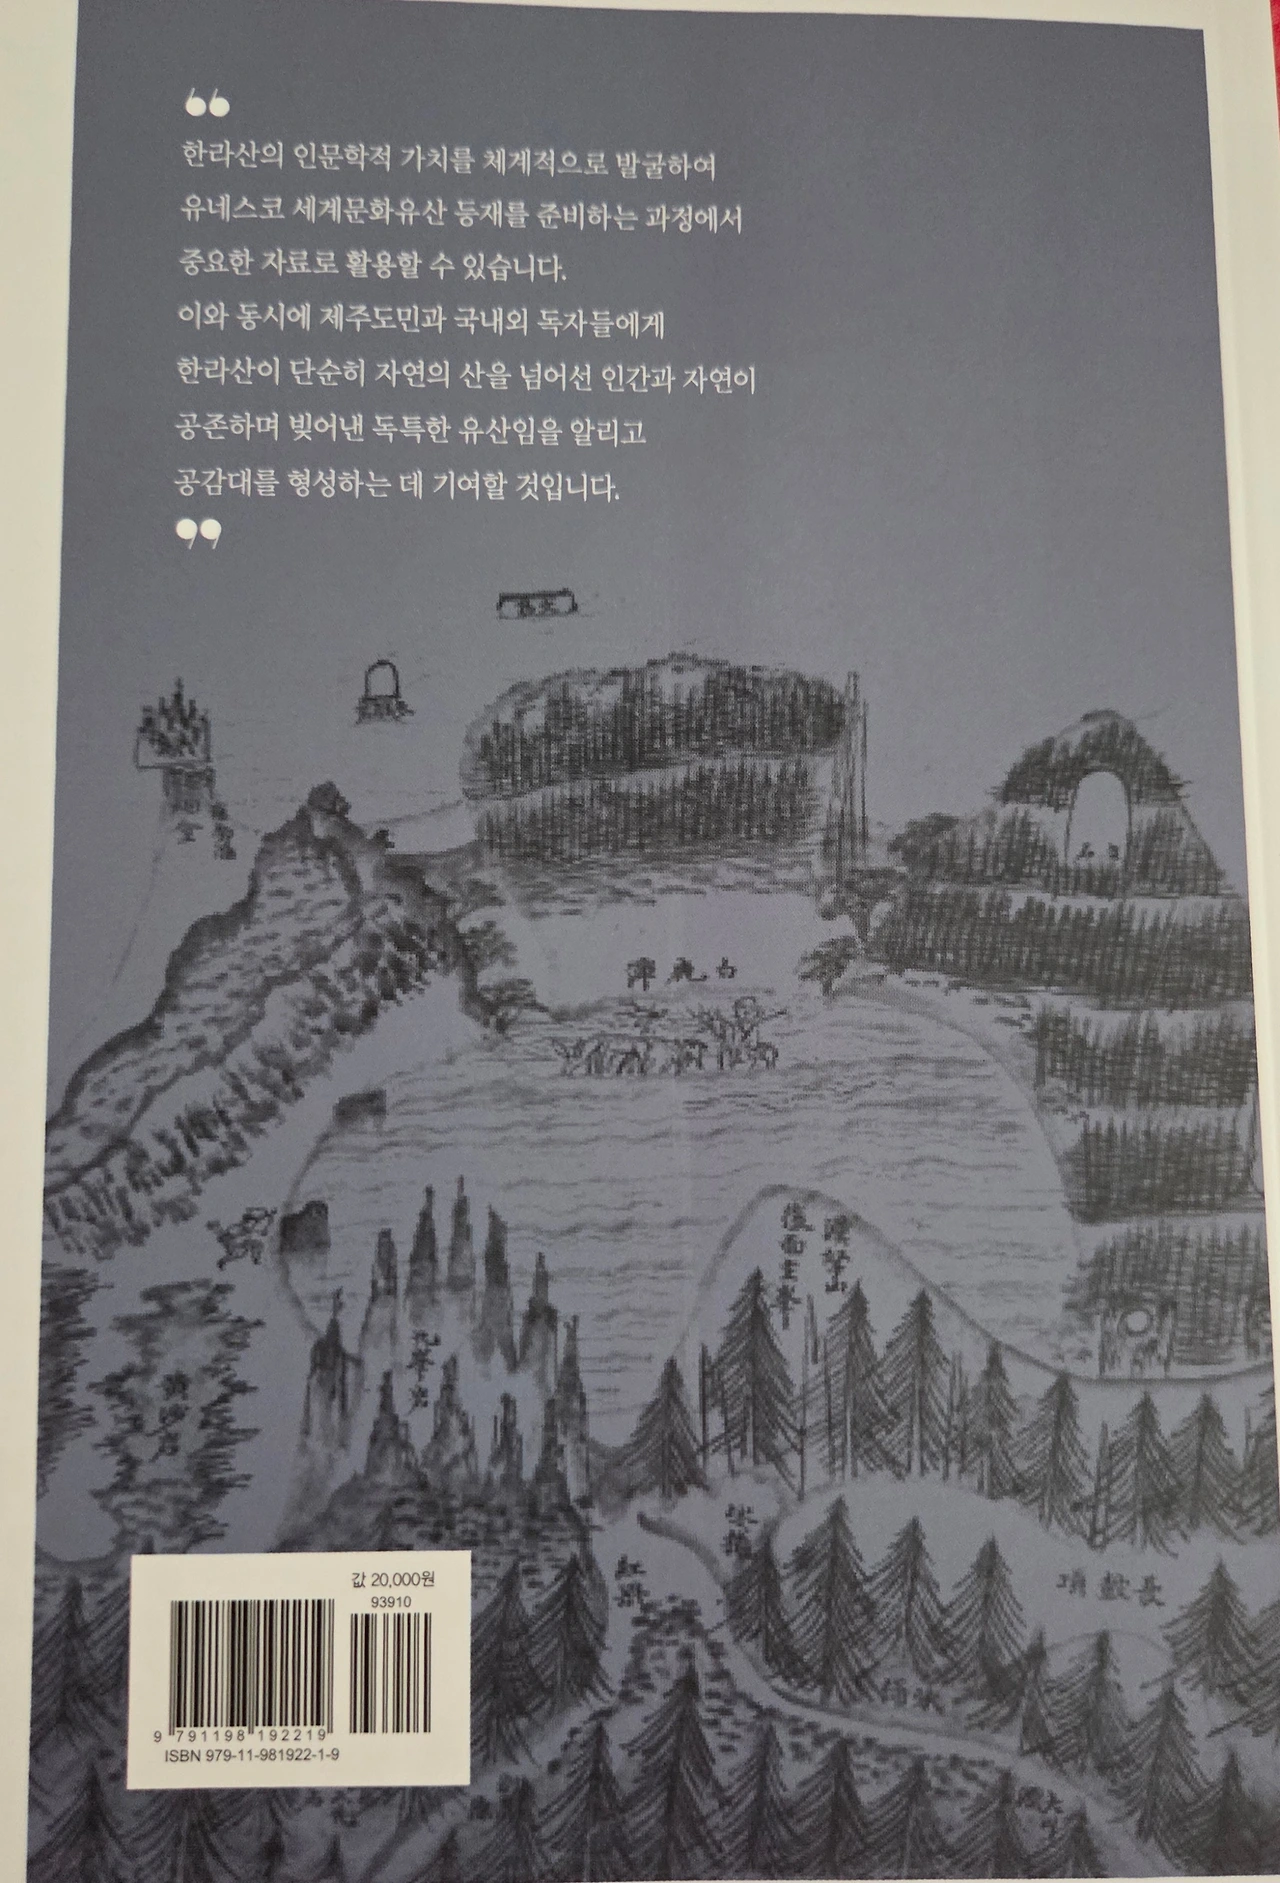 한라산의 인문학적 가치를 체계적으로 발굴하여
유네스코 세계문화유산 등재를 준비하는 과정에서
중요한 자료로 활용할 수 있습니다.
이와 동시에 제주도민과 국내외 독자들에게
한라산이 단순히 자연의 산을 넘어선 인간과 자연이
공존하며 빚어낸 독특한 유산임을 알리고
공감대를 형성하는 데 기여할 것입니다.
潭鹿白
後面主峯
望山
九峯岩
黃沙岩
項㪨長
값 20,000원
93910
9 791198 192219
ISBN 979-11-981922-1-9